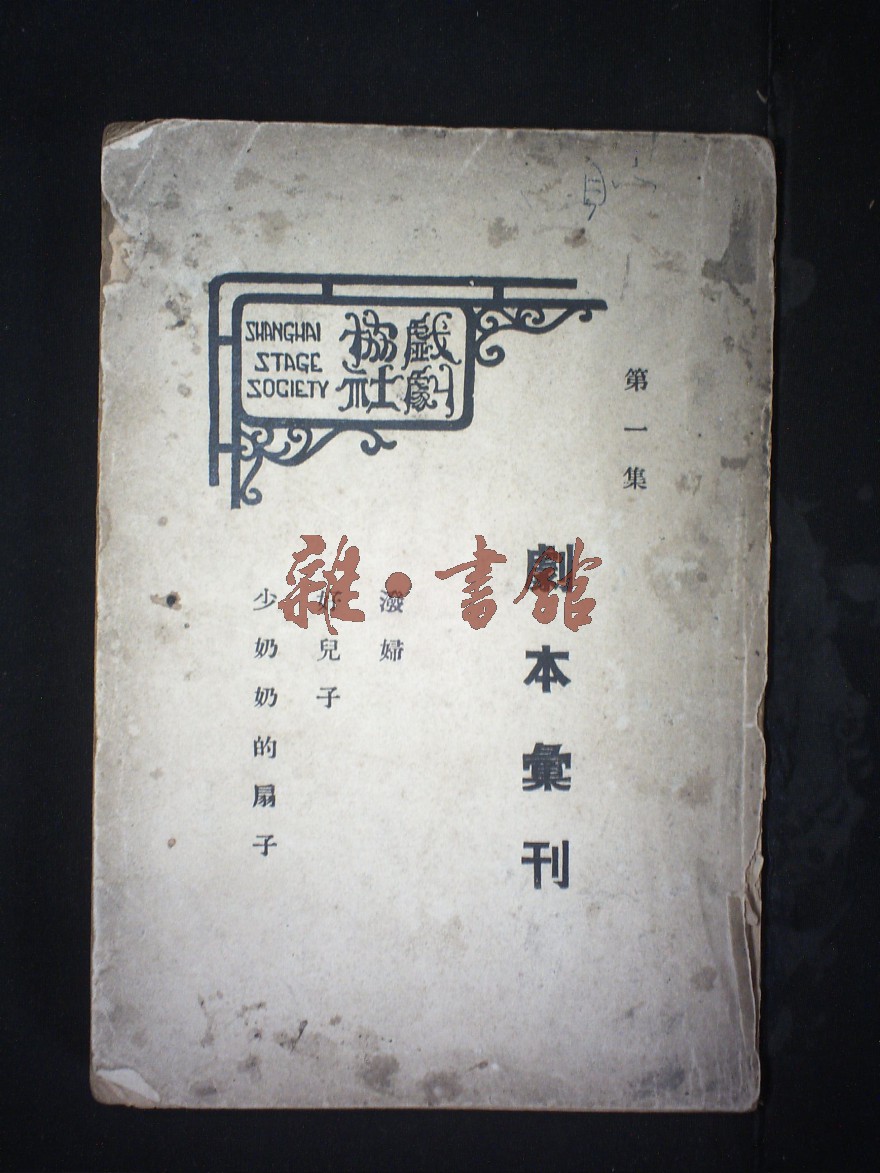 SHANGHAI
STAGE
SOCIETY
戲劇
協社
第一集
劇本彙刊
潑婦
好兒子
少奶奶的扇子
雜·書館